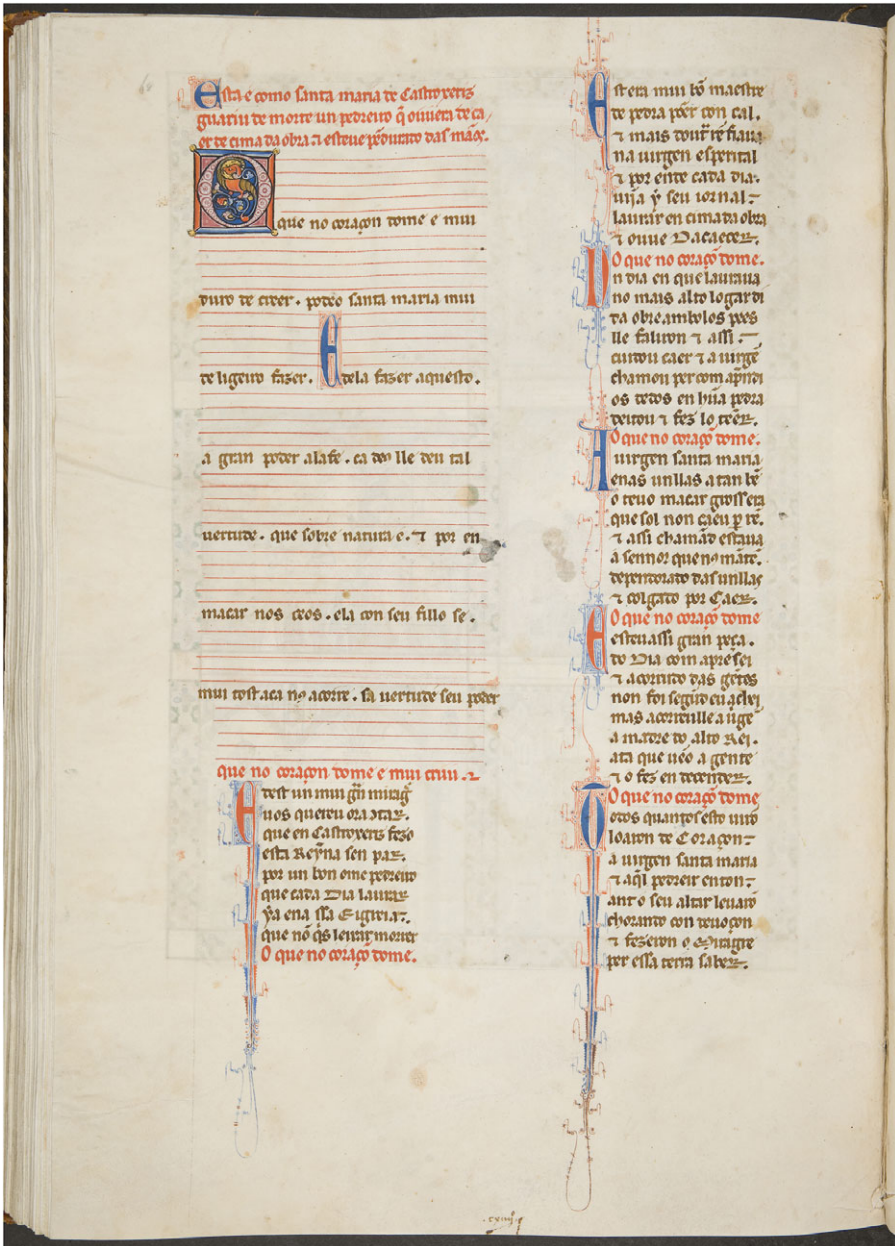 Esta e como santa maria de Castroxeriz
guariu de morte un pedreiro q̃ ouuera de ca
er de cima da obra ⁊ esteue pẽdurado das mãos.
O que no coraçon dome e mui
duro de creer. podeo santa maria mui
de ligeiro fazer. E dela fazer aquesto.
a gran poder alafe. ca deo lle deu tal
uertude. que sobre natura e. ⁊ por en
macar nos ceos. ela con seu fillo se.
mui tost aca nos acorre. sa uertude seu poder
que no coraçon dome e mui cruu.
E dest un mui gñ miragr̃
uos querreu ora ↄtar.
que en Castroxeriz fezo
esta Reỹna sen par.
por un bon ome pedreiro
que cada Dia laurar
ýa ena ssa Eigreia.
que nõ q̃s leixar morrer
O que no coraçõ dome.
Est era mui bõ maestre
de pedra põer con cal.
⁊ mais doutr̃ rẽ fiaua
na uirgen esperital
⁊ por ende cada dia.
uĩja ỹ seu iornal
laurar en cima da obra
⁊ ouue Dacaecer.
O que no coraçõ dome.
Un dia en que lauraua
no mais alto logar di
da obre ambolos pees
lle faliron ⁊ assi
cuidou caer ⁊ a uirgẽ
chamou per com aprẽdi
os dedos en hũa pedra
deitou ⁊ fez lo tẽer.
O que no coraçõ dome.
A uirgen santa maria
enas unllas a tan bẽ
o teuo macar grosseira
que sol non caeu per rẽ.
⁊ assi chamãd estaua
a sennor que nos mãtẽ.
dependorado das unllas
⁊ colgado por Caer.
O que no coraçõ dome
E esteu assi gran peça.
do Dia com aprẽ sei
⁊ acorrudo das gẽtes
non foi segũdo eu achei
mas acorreulle a uirgẽ
a madre do alto Rei.
ata que uẽo a gente
⁊ o fez en decender.
O que no coraçõ dome
Todos quantos esto uirõ
loaron de Coraçon
a uirgen santa maria
⁊ aq̃l pedreir enton
ant o seu altar leuarõ
chorando con deuoçon
⁊ fezeron o Miragre
per essa terra saber.
.cxiiij.